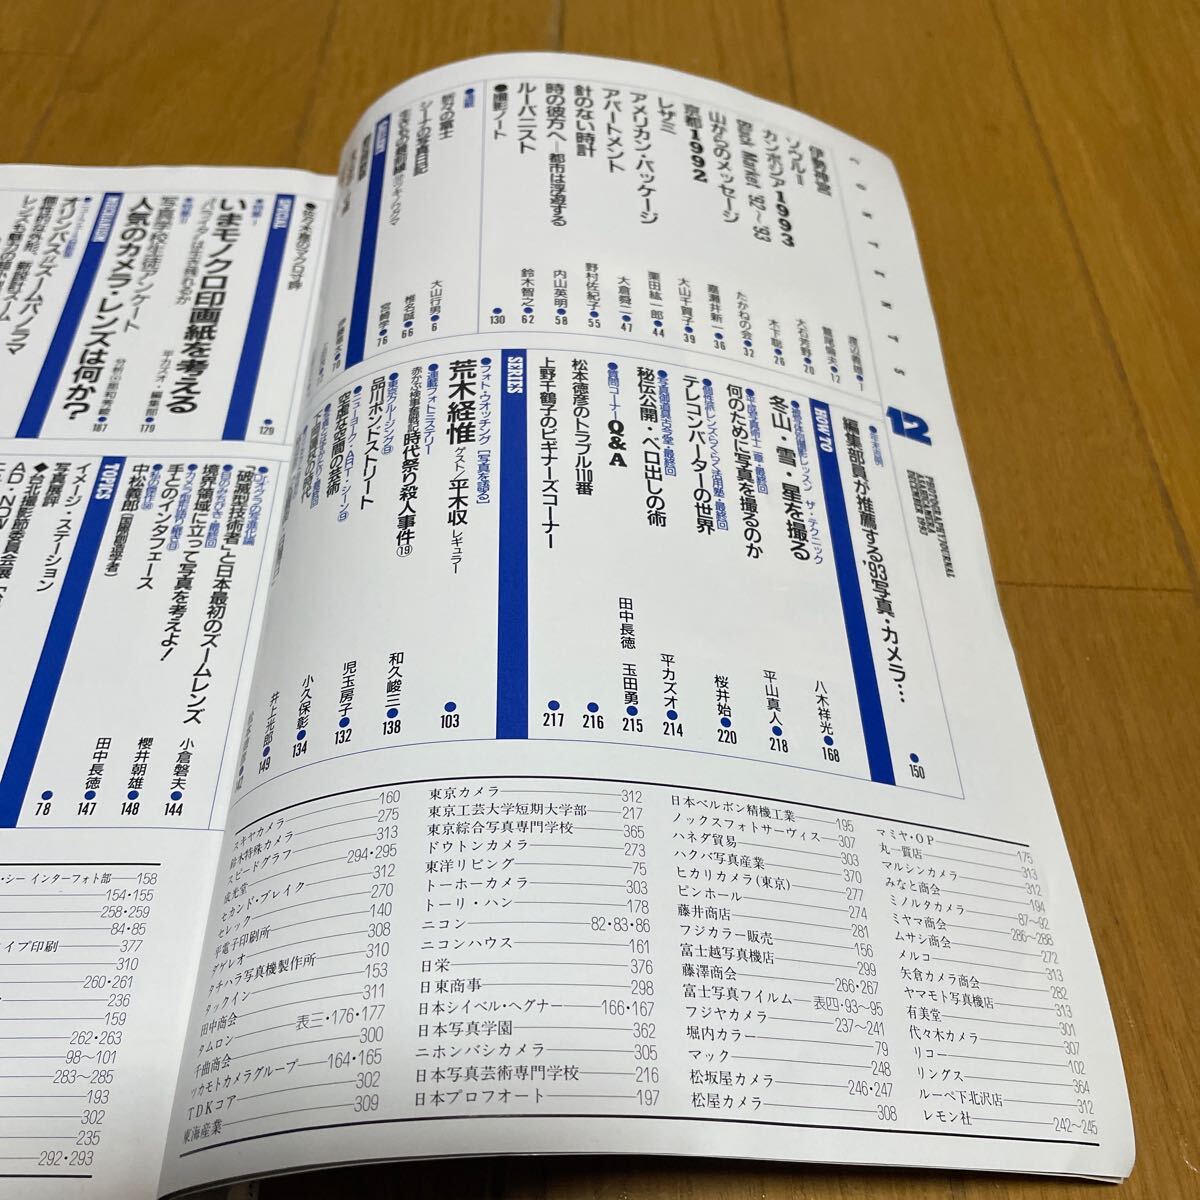 CONTENTS
12
伊勢神宮 渡辺義雄●1
ソウルー 鷲尾倫夫●12
カンボジア1993 大石芳野●20
山からのメッセージ たかねの会●32
京都1992 嘉瀬井新一●36
レザミ 大山千賀子●39
アメリカン・パッケージ 栗田紘一郎●44
アパートメント 大倉舜二●47
針のない時計 野村佐紀子●55
時の彼方へ—都市は浮遊する 内山英明●58
ルーバニスト 鈴木智之●62
●撮影ノート ●130
●連載
大山行男●6
シーナの写真日記 椎名誠●66
宮崎学●76
●年末恒例
編集部員が推薦する'93写真・カメラ… ●150
HOW TO
冬山・雪・星を撮る 八木祥光●168
何のために写真を撮るのか 平山真人●218
●個性派レンズらくらく活用塾・最終回
テレコンバーターの世界 桜井始●220
●写真御道具古今堂・最終回
秘伝公開・ベロ出しの術 平カズオ●214
●質問コーナー Q&A 田中長徳 玉田勇●215
松本徳彦のトラブル110番 ●216
上野千鶴子のビギナーズコーナー ●217
SERIES
●フォト・ウオッチング[写真を語る]
荒木経惟 ゲスト/平木収 レギュラー ●103
●連載フォトミステリー
赤かぶ検事奮戦記 時代祭り殺人事件⑲ 和久峻三●138
●東京クルージング⑫
品川ポントストリート 児玉房子●132
●ニューヨーク・ART・シーン⑫
空虚な空間の芸術 小久保彰●134
井上光郎●149
●佐々木崑のマクロ寸評 ●129
SPECIAL
●特集Ⅰ
いまモノクロ印画紙を考える
バライタは生き残れるか 平カズオ・編集部●179
●特集Ⅱ
写真学校生徒アンケート
人気のカメラ・レンズは何か? ●187
MECHANISM
オリンパスIZズームパノラマ
「破滅型技術者」と日本最初のズームレンズ 小倉磐夫●144
境界領域に立って写真を考えよ! 櫻井朝雄●148
手とのインタフェース 田中長徳●147
中松義郎(国際創造学者) ●78
TOPICS
イメージ・ステーション
写真展評
◆台北撮影節委員会展
・シー インターフォト部—158
154・155
258・259
84・85
イプ印刷—377
310
260・261
236
159
262・263
98～101
283～285
193
302
235
292・293
スキヤカメラ—160
鈴木特殊カメラ—275
スピードグラフ—313
成光堂—294・295
セカンド・ブレイク—312
セレック—270
平電子印刷所—140
ダゲレオ—308
タチハラ写真機製作所—310
タックイン—153
田中商会—311
タムロン—表三・176・177
千曲商会—300
ツカモトカメラグループ—164・165
TDKコア—302
東海産業—309
東京カメラ—312
東京工芸大学短期大学部—217
東京綜合写真専門学校—365
ドウトンカメラ—273
東洋リビング—75
トーホーカメラ—303
トーリ・ハン—178
ニコン—82・83・86
ニコンハウス—161
日栄—376
日東商事—298
日本シイベル・ヘグナー—166・167
日本写真学園—362
ニホンバシカメラ—305
日本写真芸術専門学校—216
日本プロフオート—197
日本ベルボン精機工業—195
ノックスフォトサーヴィス—307
ハネダ貿易—303
ハクバ写真産業—370
ヒカリカメラ(東京)—277
ピンホール—274
藤井商店—281
フジカラー販売—156
富士越写真機店—299
藤澤商会—266・267
富士写真フイルム—表四・93～95
フジヤカメラ—237～241
堀内カラー—79
マック—248
松坂屋カメラ—246・247
松屋カメラ—308
マミヤ・OP—175
丸一質店—313
マルシンカメラ—312
みなと商会—194
ミノルタカメラ—87～92
ミヤマ商会—286～288
ムサシ商会—272
メルコ—313
矢倉カメラ商会—282
ヤマモト写真機店—313
有美堂—301
代々木カメラ—307
リコー—102
リングス—364
ルーペ下北沢店—312
レモン社—242～245